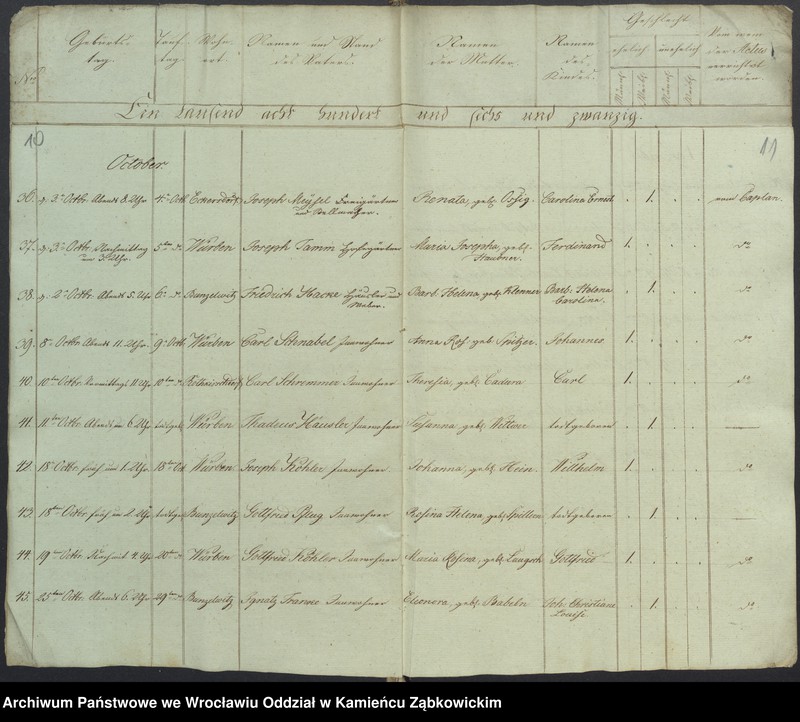 Nro
Geburts-
tag.
Tauf-
tag.
Wohn-
ort.
Namen und Stand
des Vaters.
Namen
der Mutter.
Namen
des
Kindes.
Geschlecht
ehelich. unehelich.
Männl. Weibl. Männl. Weibl.
Von wem
der Actus
verrichtet
worden.
Ein tausend acht hundert und sechs und zwanzig.
10
11
October.
36. 3. Octbr. Abends 8. Uhr 4. Octb Eckersdorf Joseph Meysel Freigärtner Renata, geb. Carolina Ernest. 1. vom Caplan.
37. 3. Octbr. Nachmittag 5ten Würben Joseph Tamm Hofegärtner Maria Josepha, geb. Ferdinand 1. do
um 3. Uhr.
38. 2. Octbr. Abends 5. Uhr 6. Bunzelwitz Friedrich Hacke Häusler und Barb. Helena, geb. Klenner Barb. Helena 1. do
Carolina.
39. 8. Octbr. Abends 11. Uhr. 9. Octb. Würben Carl Schnabel Inwohner Anna Ros. geb. Spitzer. Johannes 1. do
40. 10ten Octbr. Vormittags 11 Uhr 10ten Carl Schremmer Inwohner Theresia, geb. Cadara Carl 1. do
41. 11ten Octbr. Abends 6. Uhr Würben Thadeus Häusler Inwohner Susanna geb. Wittwer todtgeboren 1.
42. 18. Octbr. früh um 1. Uhr. 18ten Oct Würben Joseph Köhler Inwohner. Johanna, geb. Hein. Wilhelm 1. do
43. 18. Octbr. früh um 2. Uhr Bunzelwitz Gottfried Inwohner Rosina Helena, geb. todtgeboren 1.
44. 19. Octbr. 4. Uhr 20ten Würben Gottfried Köhler Inwohner Maria Rosina, geb. Gottfried 1. do
45. 25ten Octbr. Abends 6. Uhr 29ten Bunzelwitz Ignatz Franke Inwohner Eleonora, geb. Joh. Christiane 1. do
Louise
Archiwum Państwowe we Wrocławiu Oddział w Kamieńcu Ząbkowickim